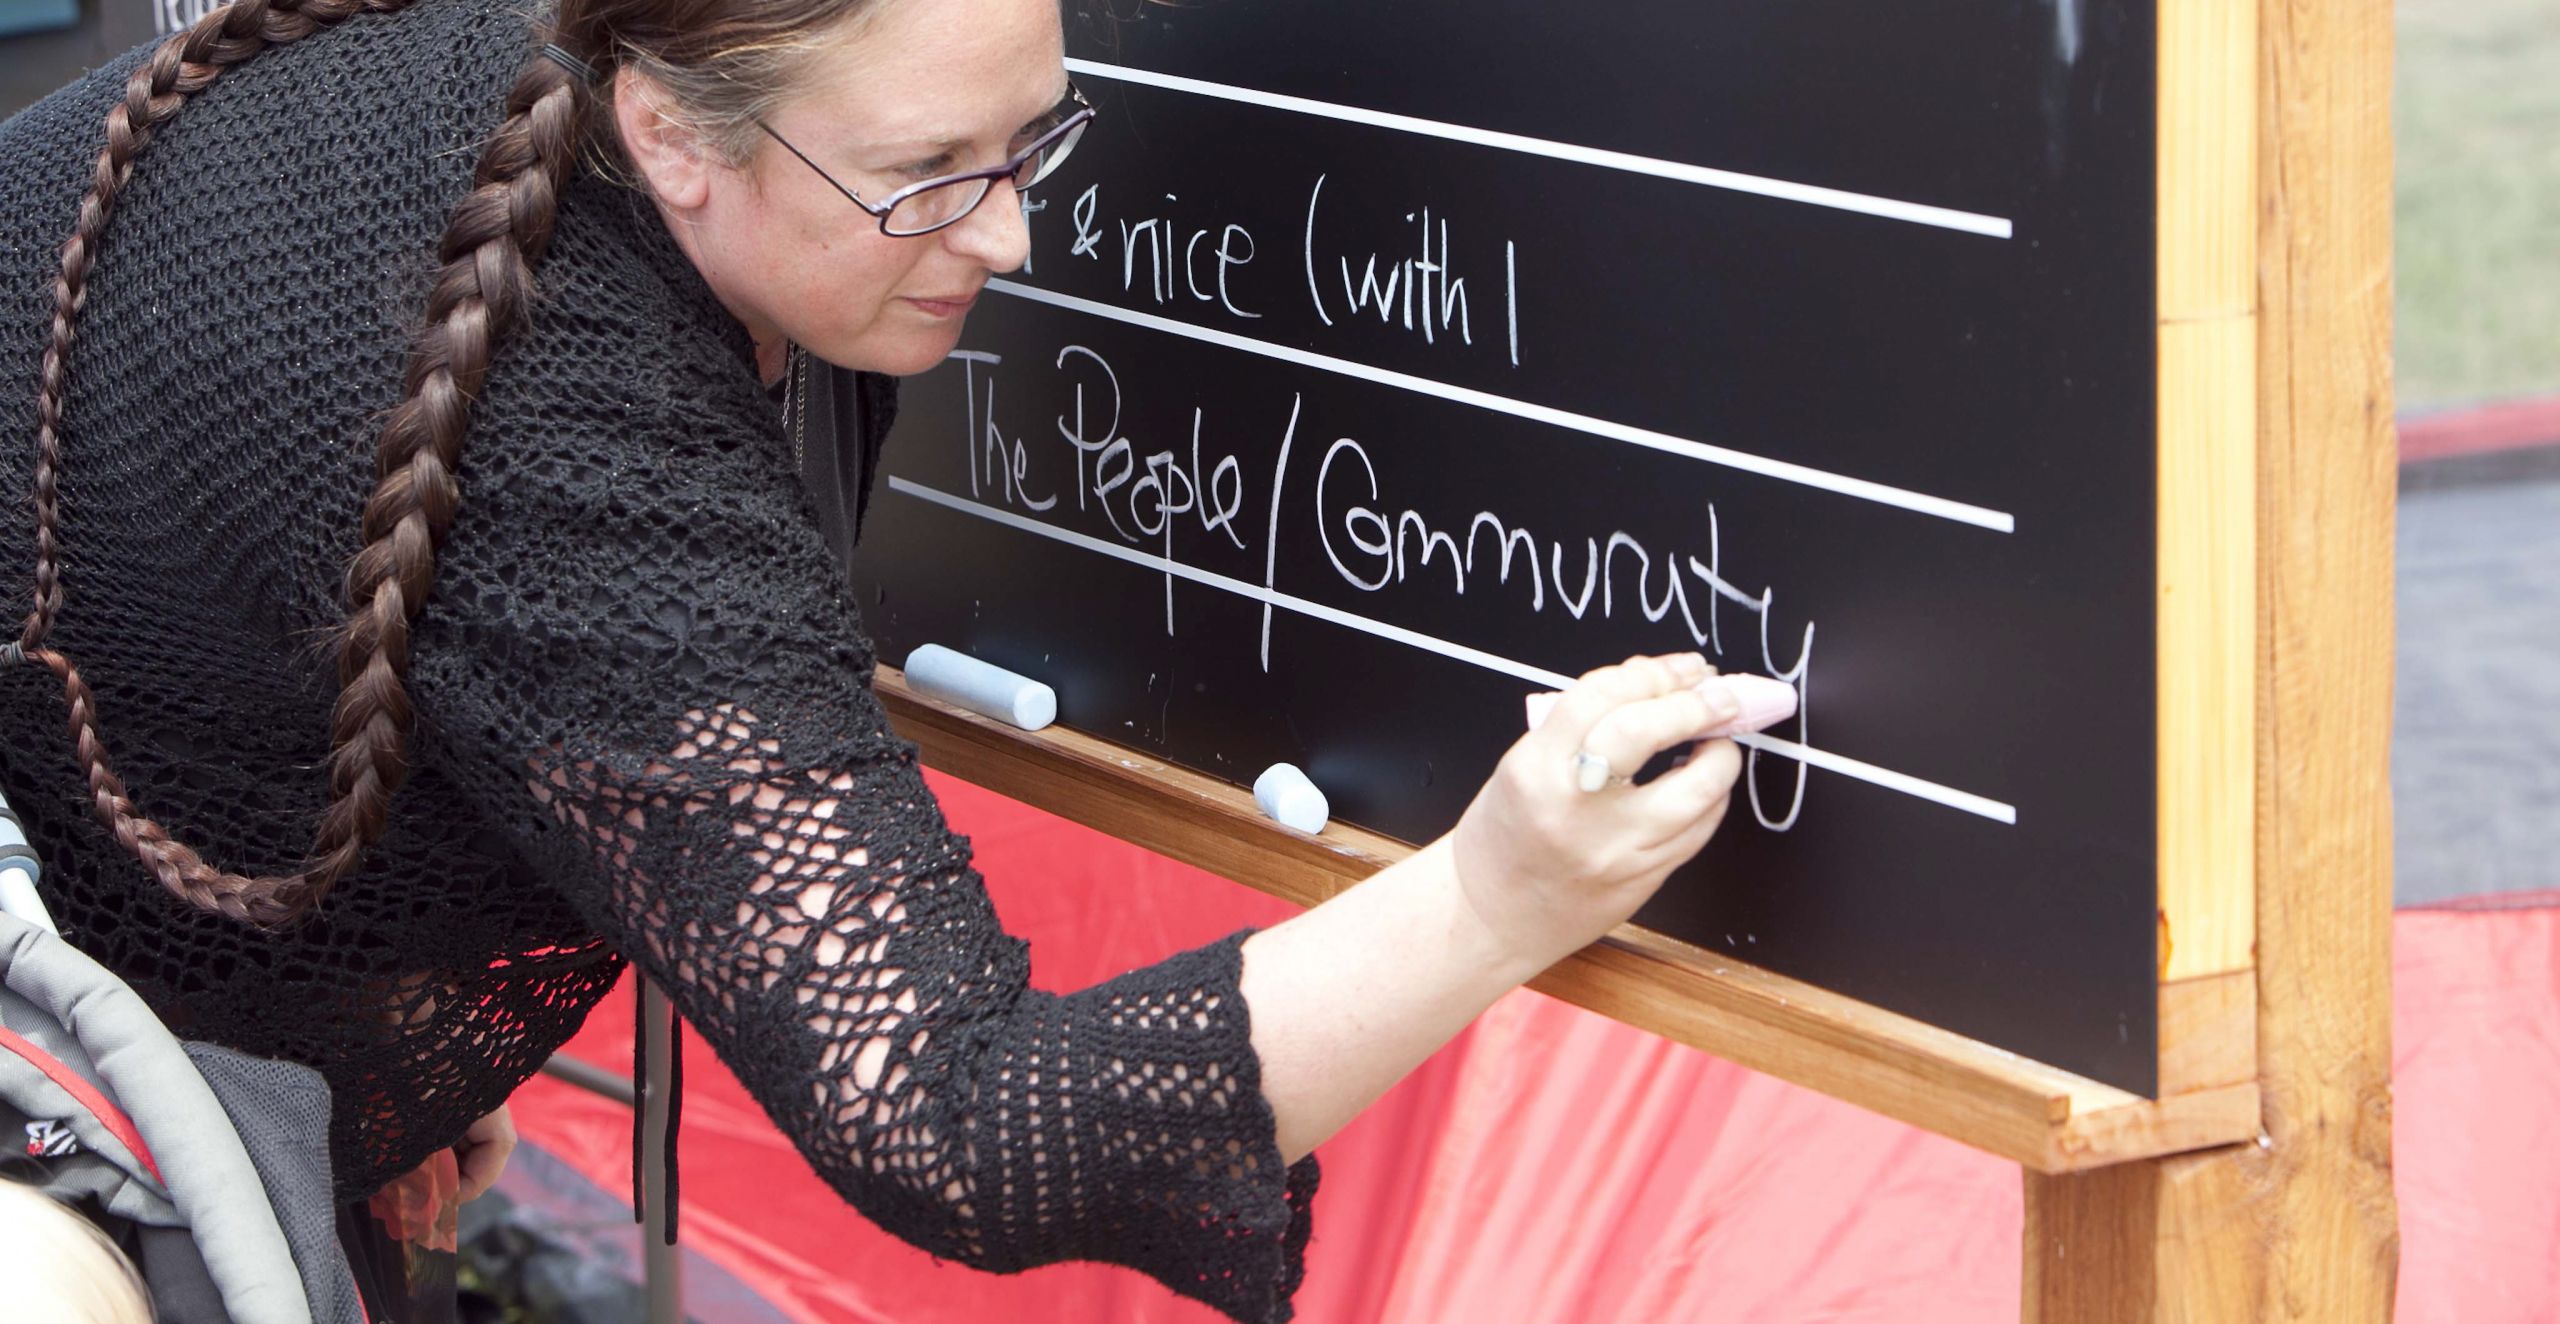 & nice (with 1
The People/Community